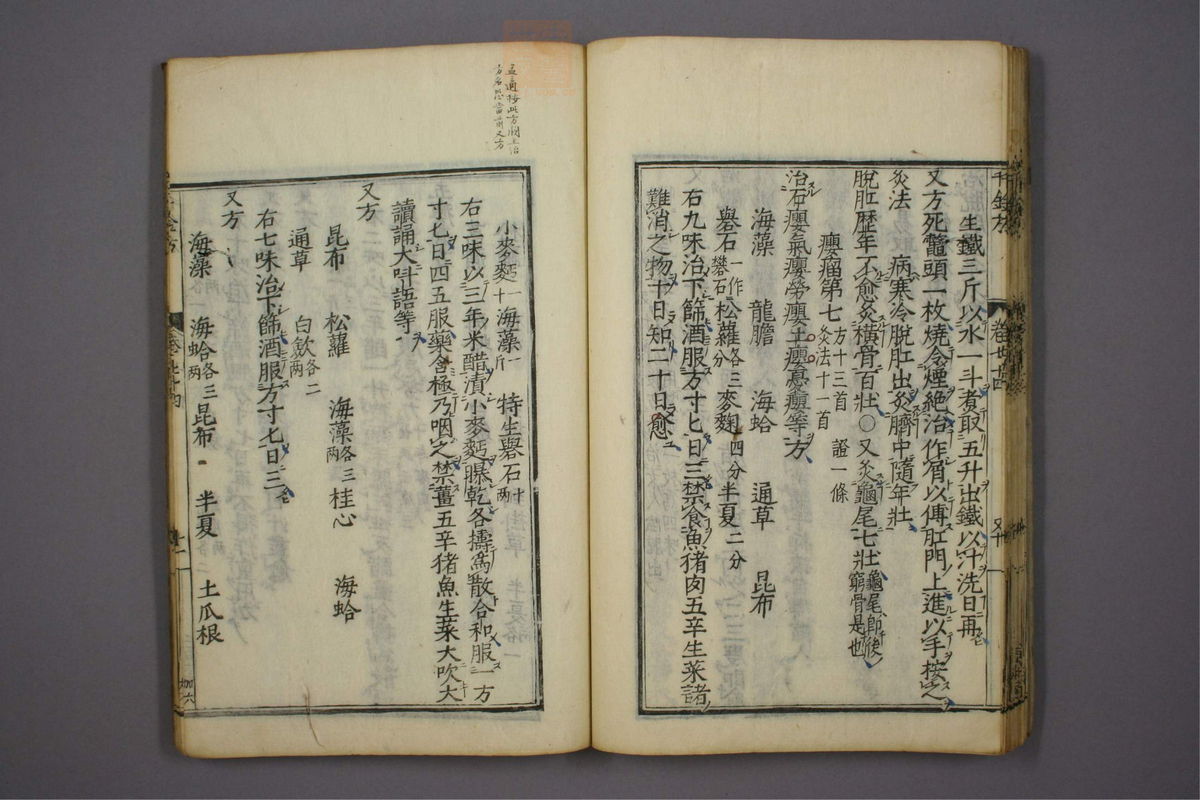 生鐵三斤以水一斗煮取五升出鐵以汁洗日再
又方死鼈頭一枚燒令煙絕治作屑以傅肛門上進以手按之
灸法 病寒冷脫肛出灸臍中隨年壯
脫肛歷年不愈灸橫骨百壯○又灸龜尾七壯龜尾即後窮骨是也
癭瘤第七方十三首 證一條 灸法十一首
治石癭氣癭勞癭土癭憂癭等方
海藻 龍膽 海蛤 通草 昆布
礜石一作礬石 松蘿各三分 麥麴四分 半夏二分
右九味治下篩酒服方寸匕日三禁食魚猪肉五辛生菜諸
難消之物十日知二十日愈
千金方 卷廿四
孟適按此方闕主治
方名恐當前又方
小麥麪一十 海藻一斤 特生礜石十兩
右三味以三年米醋漬小麥麪曝乾各擣爲散合和服一方
寸匕日四五服藥含極乃咽之禁薑五辛猪魚生菜大吹大
讀誦大呌語等
又方
昆布 松蘿 海藻各三兩 桂心 海蛤
通草 白斂各二兩
右七味治下篩酒服方寸匕日三
又方
海藻一 海蛤各三兩 昆布 半夏 土瓜根